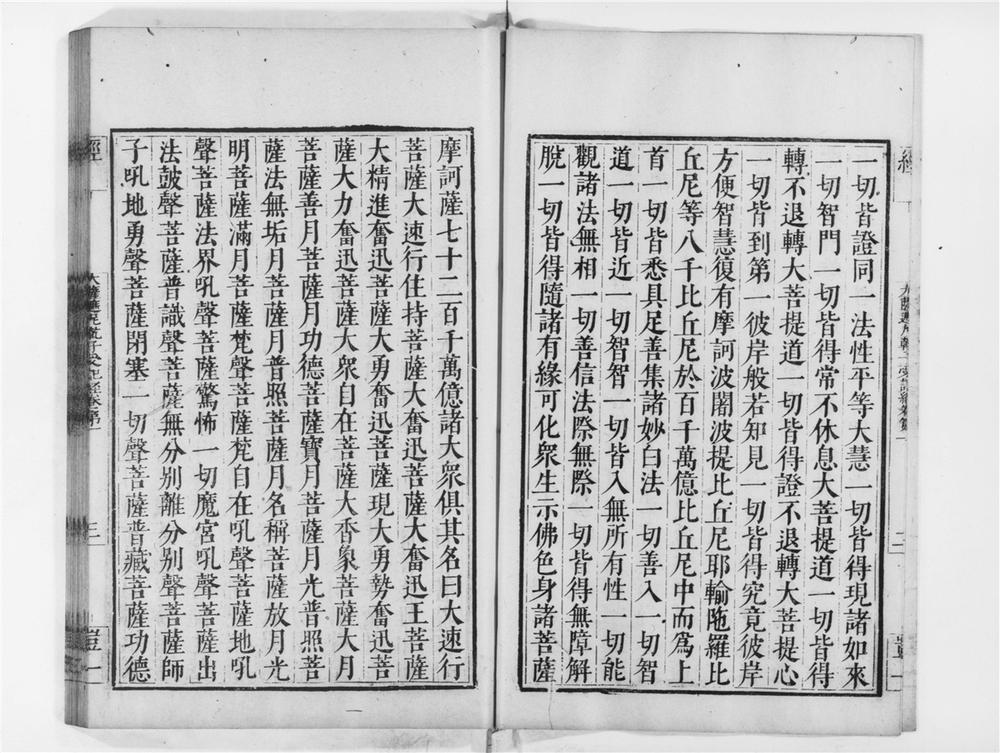 經
一切皆證同一法性平等大慧一切皆得現諸如來
一切智門一切皆得常不休息大菩提道一切皆得
轉不退轉大菩提道一切皆得證不退轉大菩提心
一切皆到第一彼岸般若知見一切皆得究竟彼岸
方便智慧復有摩訶波闍波提比丘尼耶輸陁羅比
丘尼等八千比丘尼於百千萬億比丘尼中而爲上
首一切皆悉具足善集諸妙白法一切善入一切智
道一切皆近一切智智一切皆入無所有性一切能
觀諸法無相一切善信法際無際一切皆得無障解
脫一切皆得隨諸有緣可化衆生示佛色身諸菩薩
摩訶薩七十二百千萬億諸大衆俱其名曰大速行
菩薩大速行住持菩薩大奮迅菩薩大奮迅王菩薩
大精進奮迅菩薩大勇奮迅菩薩現大勇勢奮迅菩
薩大力奮迅菩薩大衆自在菩薩大香象菩薩大月
菩薩善月菩薩月功德菩薩寶月菩薩月光普照菩
薩法無垢月菩薩月普照菩薩月名稱菩薩放月光
明菩薩滿月菩薩梵聲菩薩梵自在吼聲菩薩地吼
聲菩薩法界吼聲菩薩驚怖一切魔宮吼聲菩薩出
法鼓聲菩薩普識聲菩薩無分别離分别聲菩薩師
子吼地勇聲菩薩閉塞一切聲菩薩普藏菩薩功德
經
三
豈一